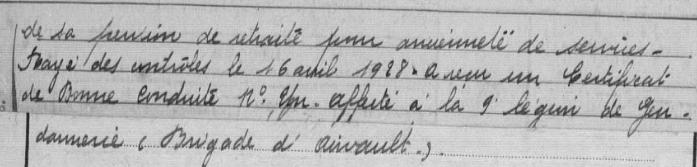 de sa pension de retraite pour ancienneté de services -
Rayé des contrôles le 16 avril 1928. a reçu un Certificat
de Bonne Conduite N°. Affecté à la 9e légion de Gen-
darmerie (Brigade d'Airvault.).